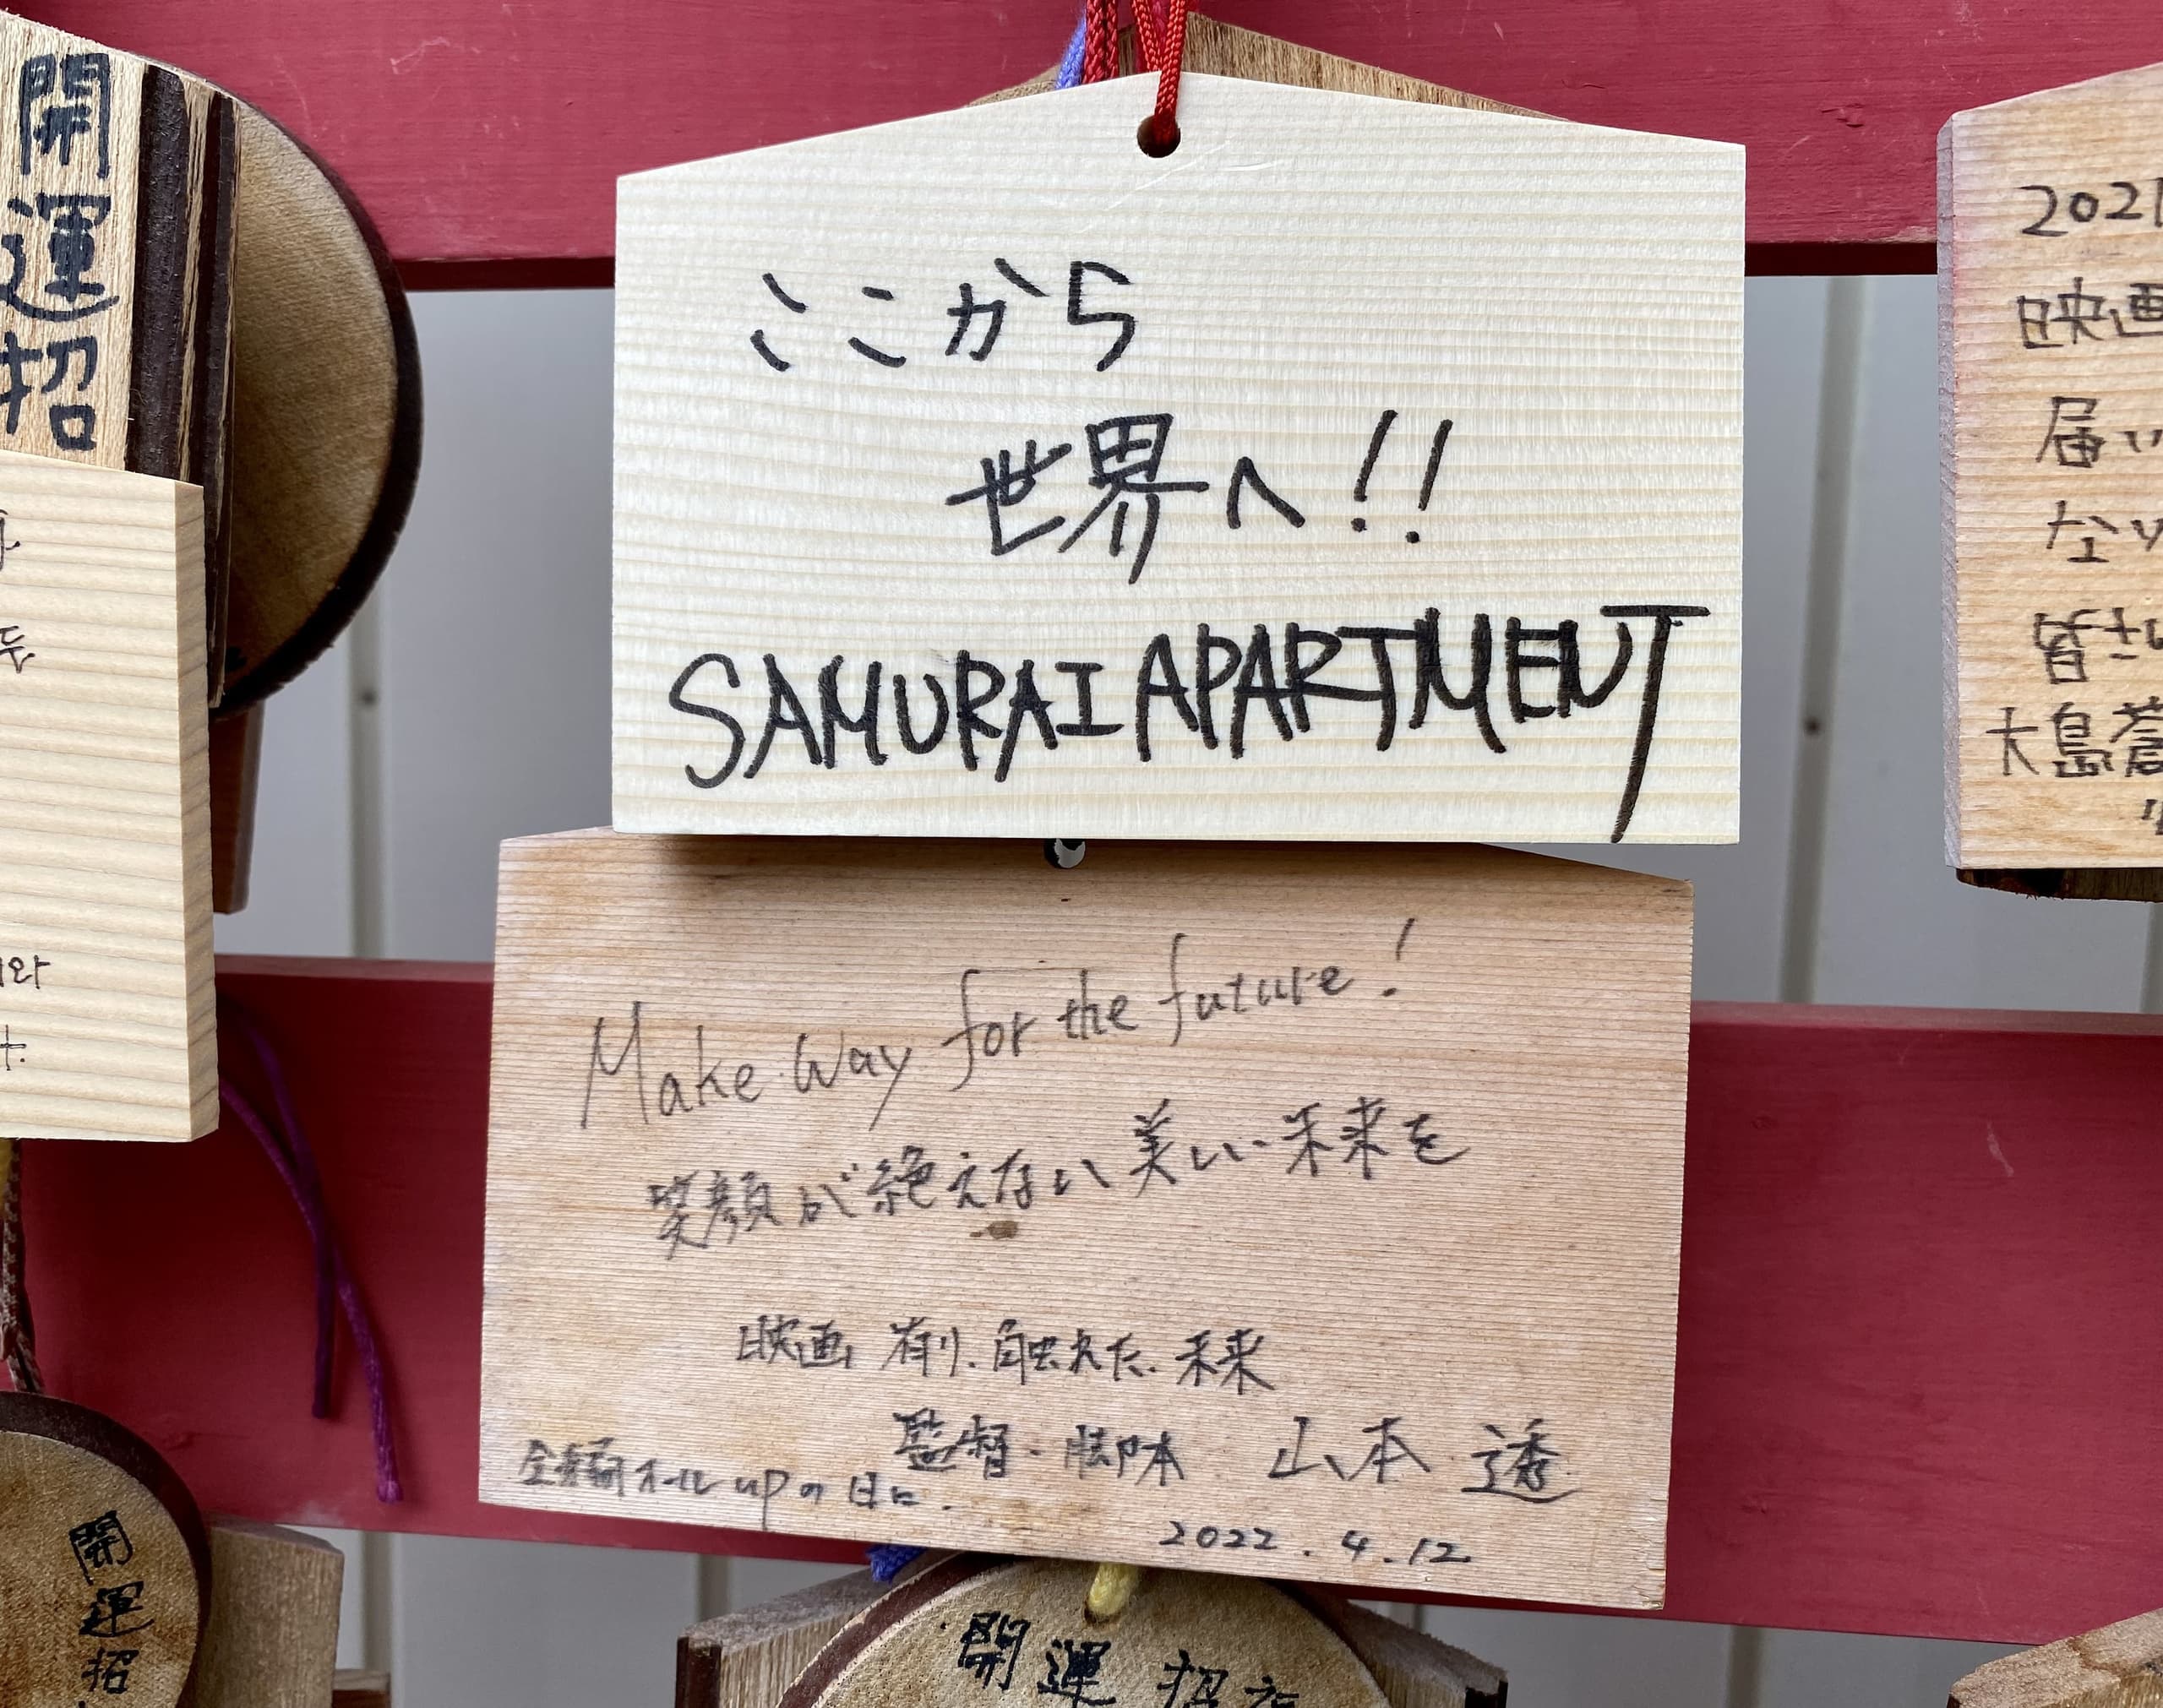 開運招
ここから
世界へ!!
SAMURAI APARTMENT
2021
映画
届い
ない
皆さ
大島蒼
와
Make way for the future!
笑顔が絶えない美しい未来を
映画 有り、触れた、未来
監督・脚本 山本 透
オールupの日に.
2022.4.12
開運招
開運招